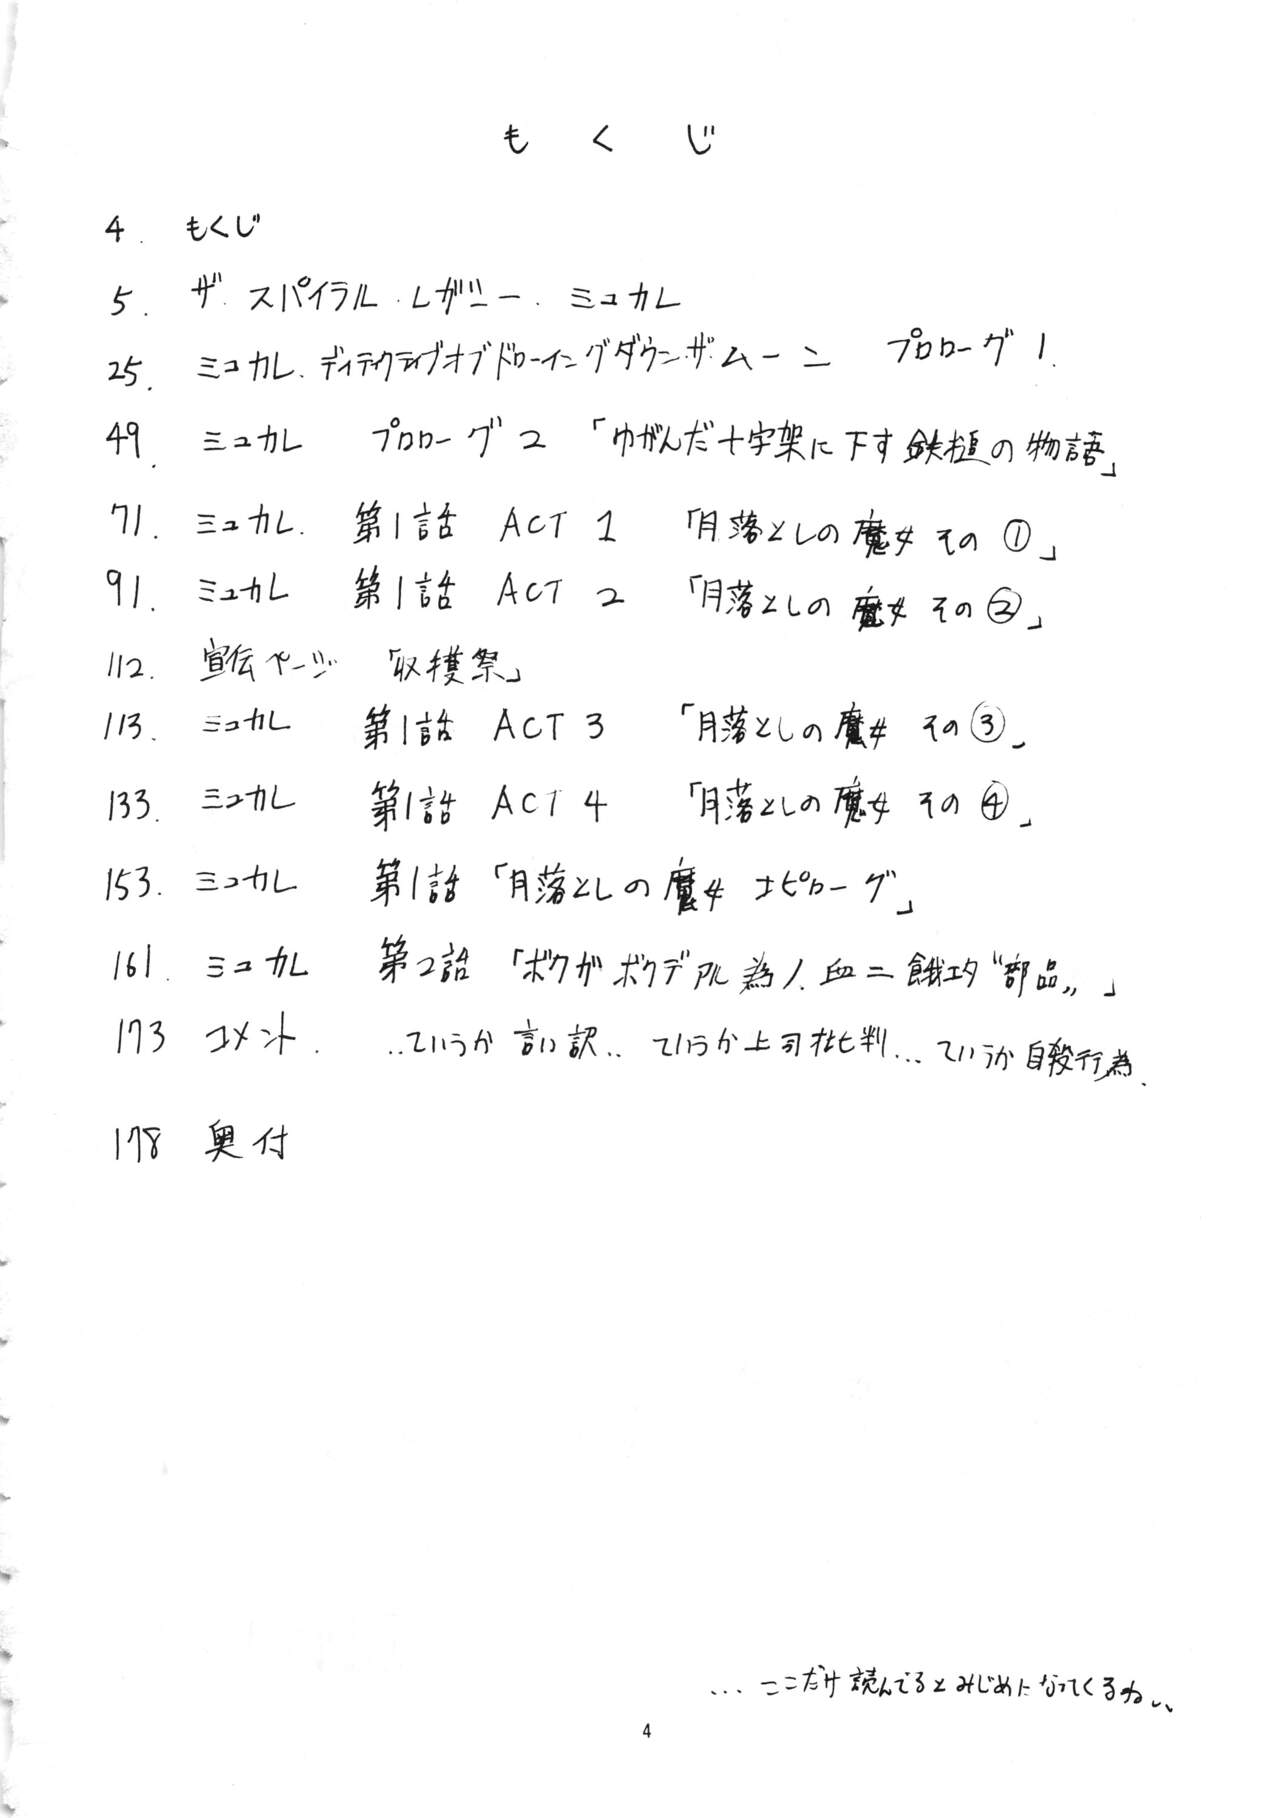 もくじ
4. もくじ
5. ザ・スパイラル・レガシー・ミュカレ
25. ミュカレ・ディティクティブオブドローイングダウン・ザ・ムーン プロローグ1.
49. ミュカレ プロローグ2 「ゆがんだ十字架に下す鉄槌の物語」
71. ミュカレ. 第1話 ACT 1 「月落としの魔女 その①」
91. ミュカレ 第1話 ACT 2 「月落としの魔女 その②」
112. 宣伝ページ 「収穫祭」
113. ミュカレ 第1話 ACT 3 「月落としの魔女 その③」
133. ミュカレ 第1話 ACT 4 「月落としの魔女 その④」
153. ミュカレ 第1話 「月落としの魔女 エピローグ」
161. ミュカレ 第2話 「ボクガボクデアル為ノ血ニ餓エタ〝部品〟」
173 コメント. ‥ていうか言い訳‥ ていうか上司批判… ていうか自殺行為.
178 奥付
…ここだけ読んでるとみじめになってくるね、、
4